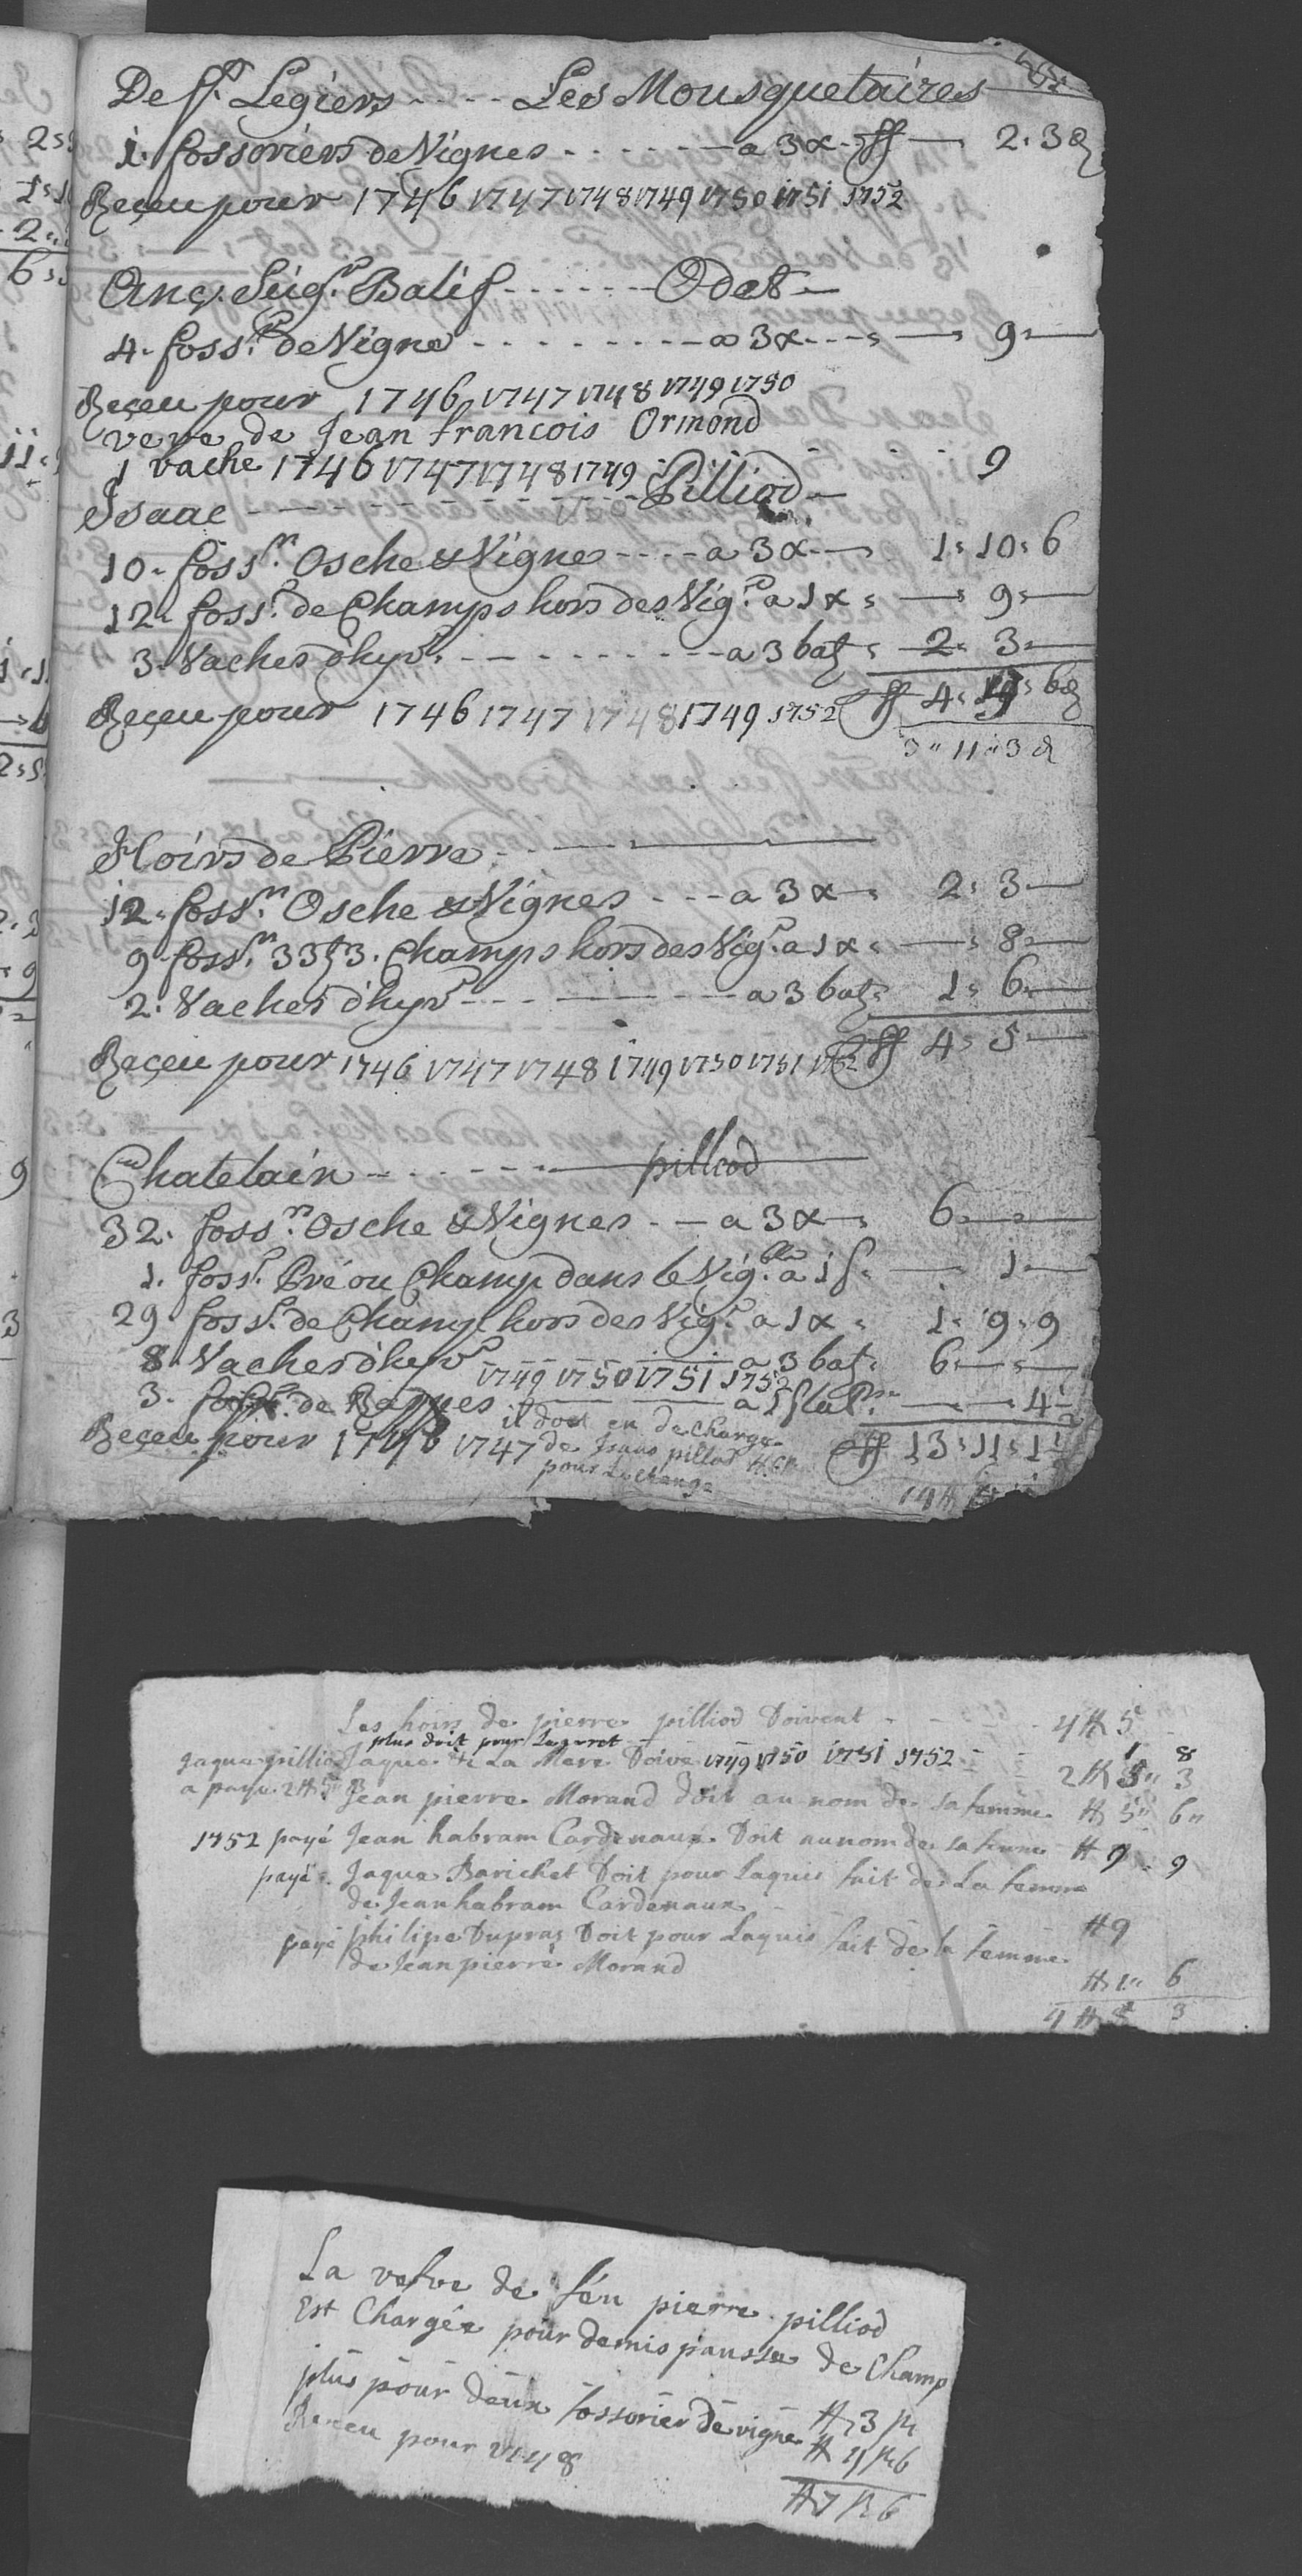 De ss. Legiers .... Les Mousquetaires
1. fossoriers de Vignes ...... a 3 x. ff — 2. 3 d
Reçeu pour 1746 1747 1748 1749 1750 1751 1752
Anc. Seigr. Balif ...... Odet —
4. fossr. de Vigne ........ a 3 x — 9 —
Reçeu pour 1746 1747 1748 1749 1750
veve de Jean francois Ormond
1 vache 1746 1747 1748 1749 ..... 9
Isaac ........ Pilliod —
10. fossrs. Osche & Vignes .... a 3 x — 1: 10: 6
12. fossr. de Champs hors des Vigr. a 1 x : — 9: —
3. Vaches d'hyvr. ....... a 3 batz : 2: 3: —
Reçeu pour 1746 1747 1748 1749 1752 ff 4: 19: 6 d
3 " 11 " 3 d
Hoirs de Pierre .. —
12. fossrs. Osche & Vignes ... a 3 x — 2: 3 —
9. fossrs. 33 3. Champs hors des Vigr. a 1 x : — 8: —
2. Vaches d'hyvr ..... a 3 batz : 1: 6: —
Reçeu pour 1746 1747 1748 1749 1750 1751 1752 ff 4: 5 —
Chatelain ...... pilliod
32. fossrs. Osche & Vignes .. a 3 x — 6: —
1. fossr. Pré ou Champ dans le Vigble a 1 s. — 1: —
29. fossr. de Champ hors des Vigr. a 1 x : 1: 9: 9
8. Vaches d'hyvr — a 3 bat. 6: — : —
1749 1750 1751 1752
3. de Rappes — a — 4 1/2
il doet en de Charge
Reçeu pour 1746 1747 ff 13: 11: 1 1/2
de Isaac pilliod
pour Lechange
Les hoirs de pierre pilliod Doivent - - - 4 ff 5
plus doit pour 1 8
Jaque pilliod Jaque & La Mere Doive 1749 1750 1751 1752 - - 2 ff 5 " 3
a paye 2 ff 5 " 3 Jean pierre Morand doit au nom de sa femme ff 5 " 6 "
1752 payé Jean habram Cardenaux Doit au nom de sa femme ff 9 " 9
payé . Jaque Barichet Doit pour Laquis fait de La femme
de Jean habram Cardenaux - ff 9
payé philipe Dupraz Doit pour Laquis fait de la femme
de Jean pierre Morand ff 1 " 6
4 ff 5 3
La vefve de féu pierre pilliod
Est Chargée pour demis pausse de Champ
ff 3 ß
plus pour deux fossorier de vigne ff 4 ß 6
Reçeu pour 1748
ff 7 ß 6